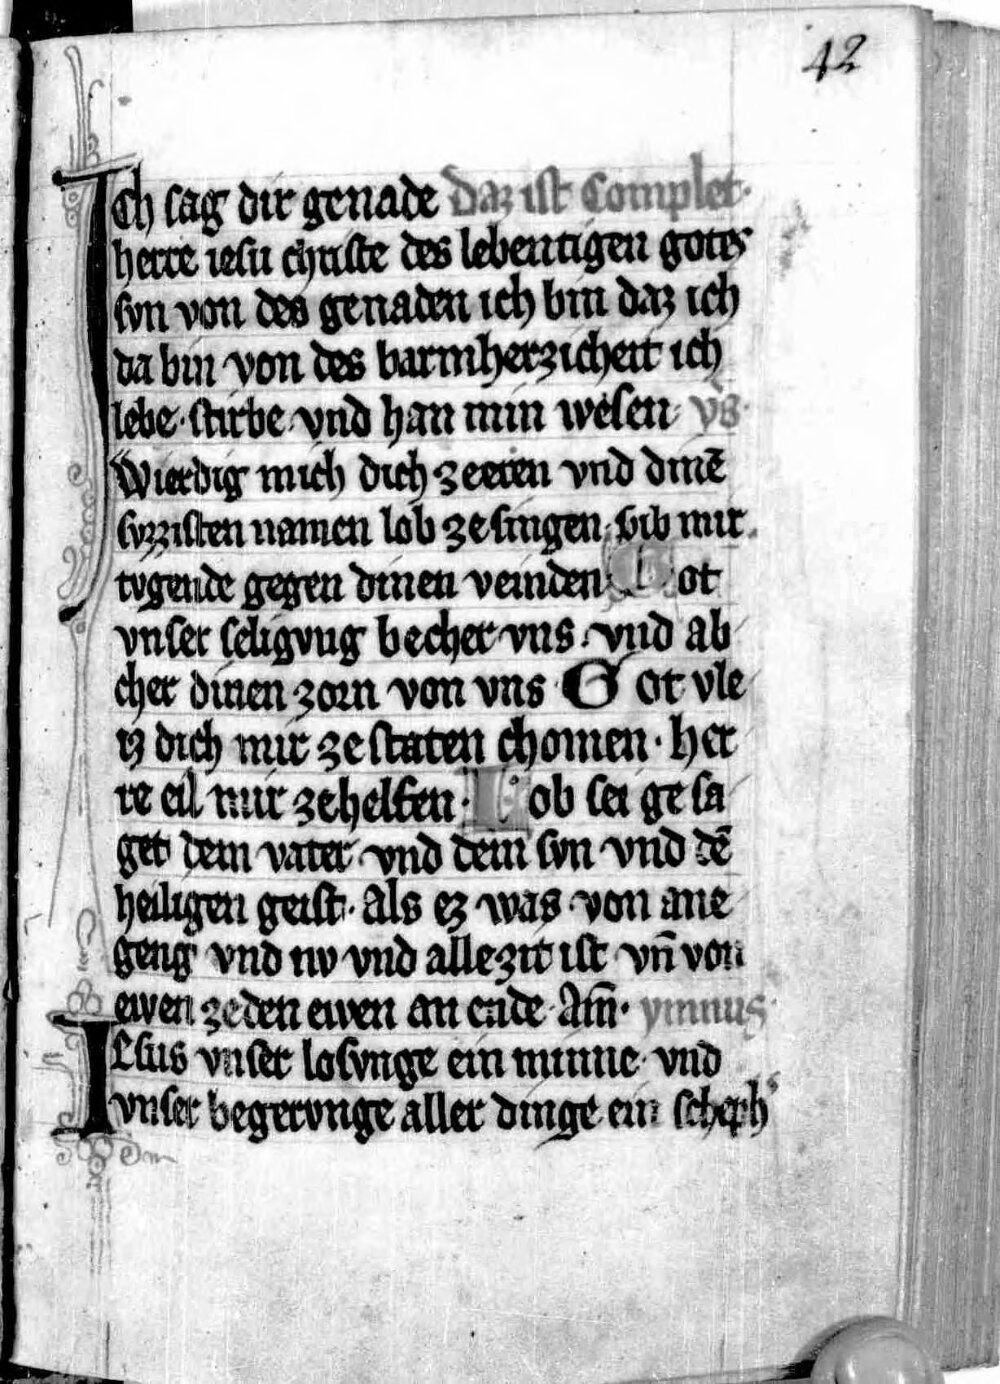 42
Ich sag dir genade Daz ist Complet.
herre iesu christe des lebentigen gotes
svn von des genaden ich bin daz ich
da bin von des barmherzicheit ich
lebe· stirbe· vnd han min wesen· vs·
Wierdig mich dich zeeren vnd dinē
svzzisten namen lob zesingen· Gib mir
tvgende gegen dinen veinden· Got
vnser seligvng becher vns· vnd ab
cher dinen zorn von vns Got vle
iz dich mir ze staten chomen· her
re eil mir zehelfen· Lob sei ge sa
get dem vater vnd dem svn vnd dē
heiligen geist· Als ez was von ane
geng vnd nv vnd allezit ist vn̄ von
ewen zeden ewen an ende· Am̄· ymnus
Iesus vnser losvnge ein minne· vnd
vnser begervnge aller dinge ein scheph